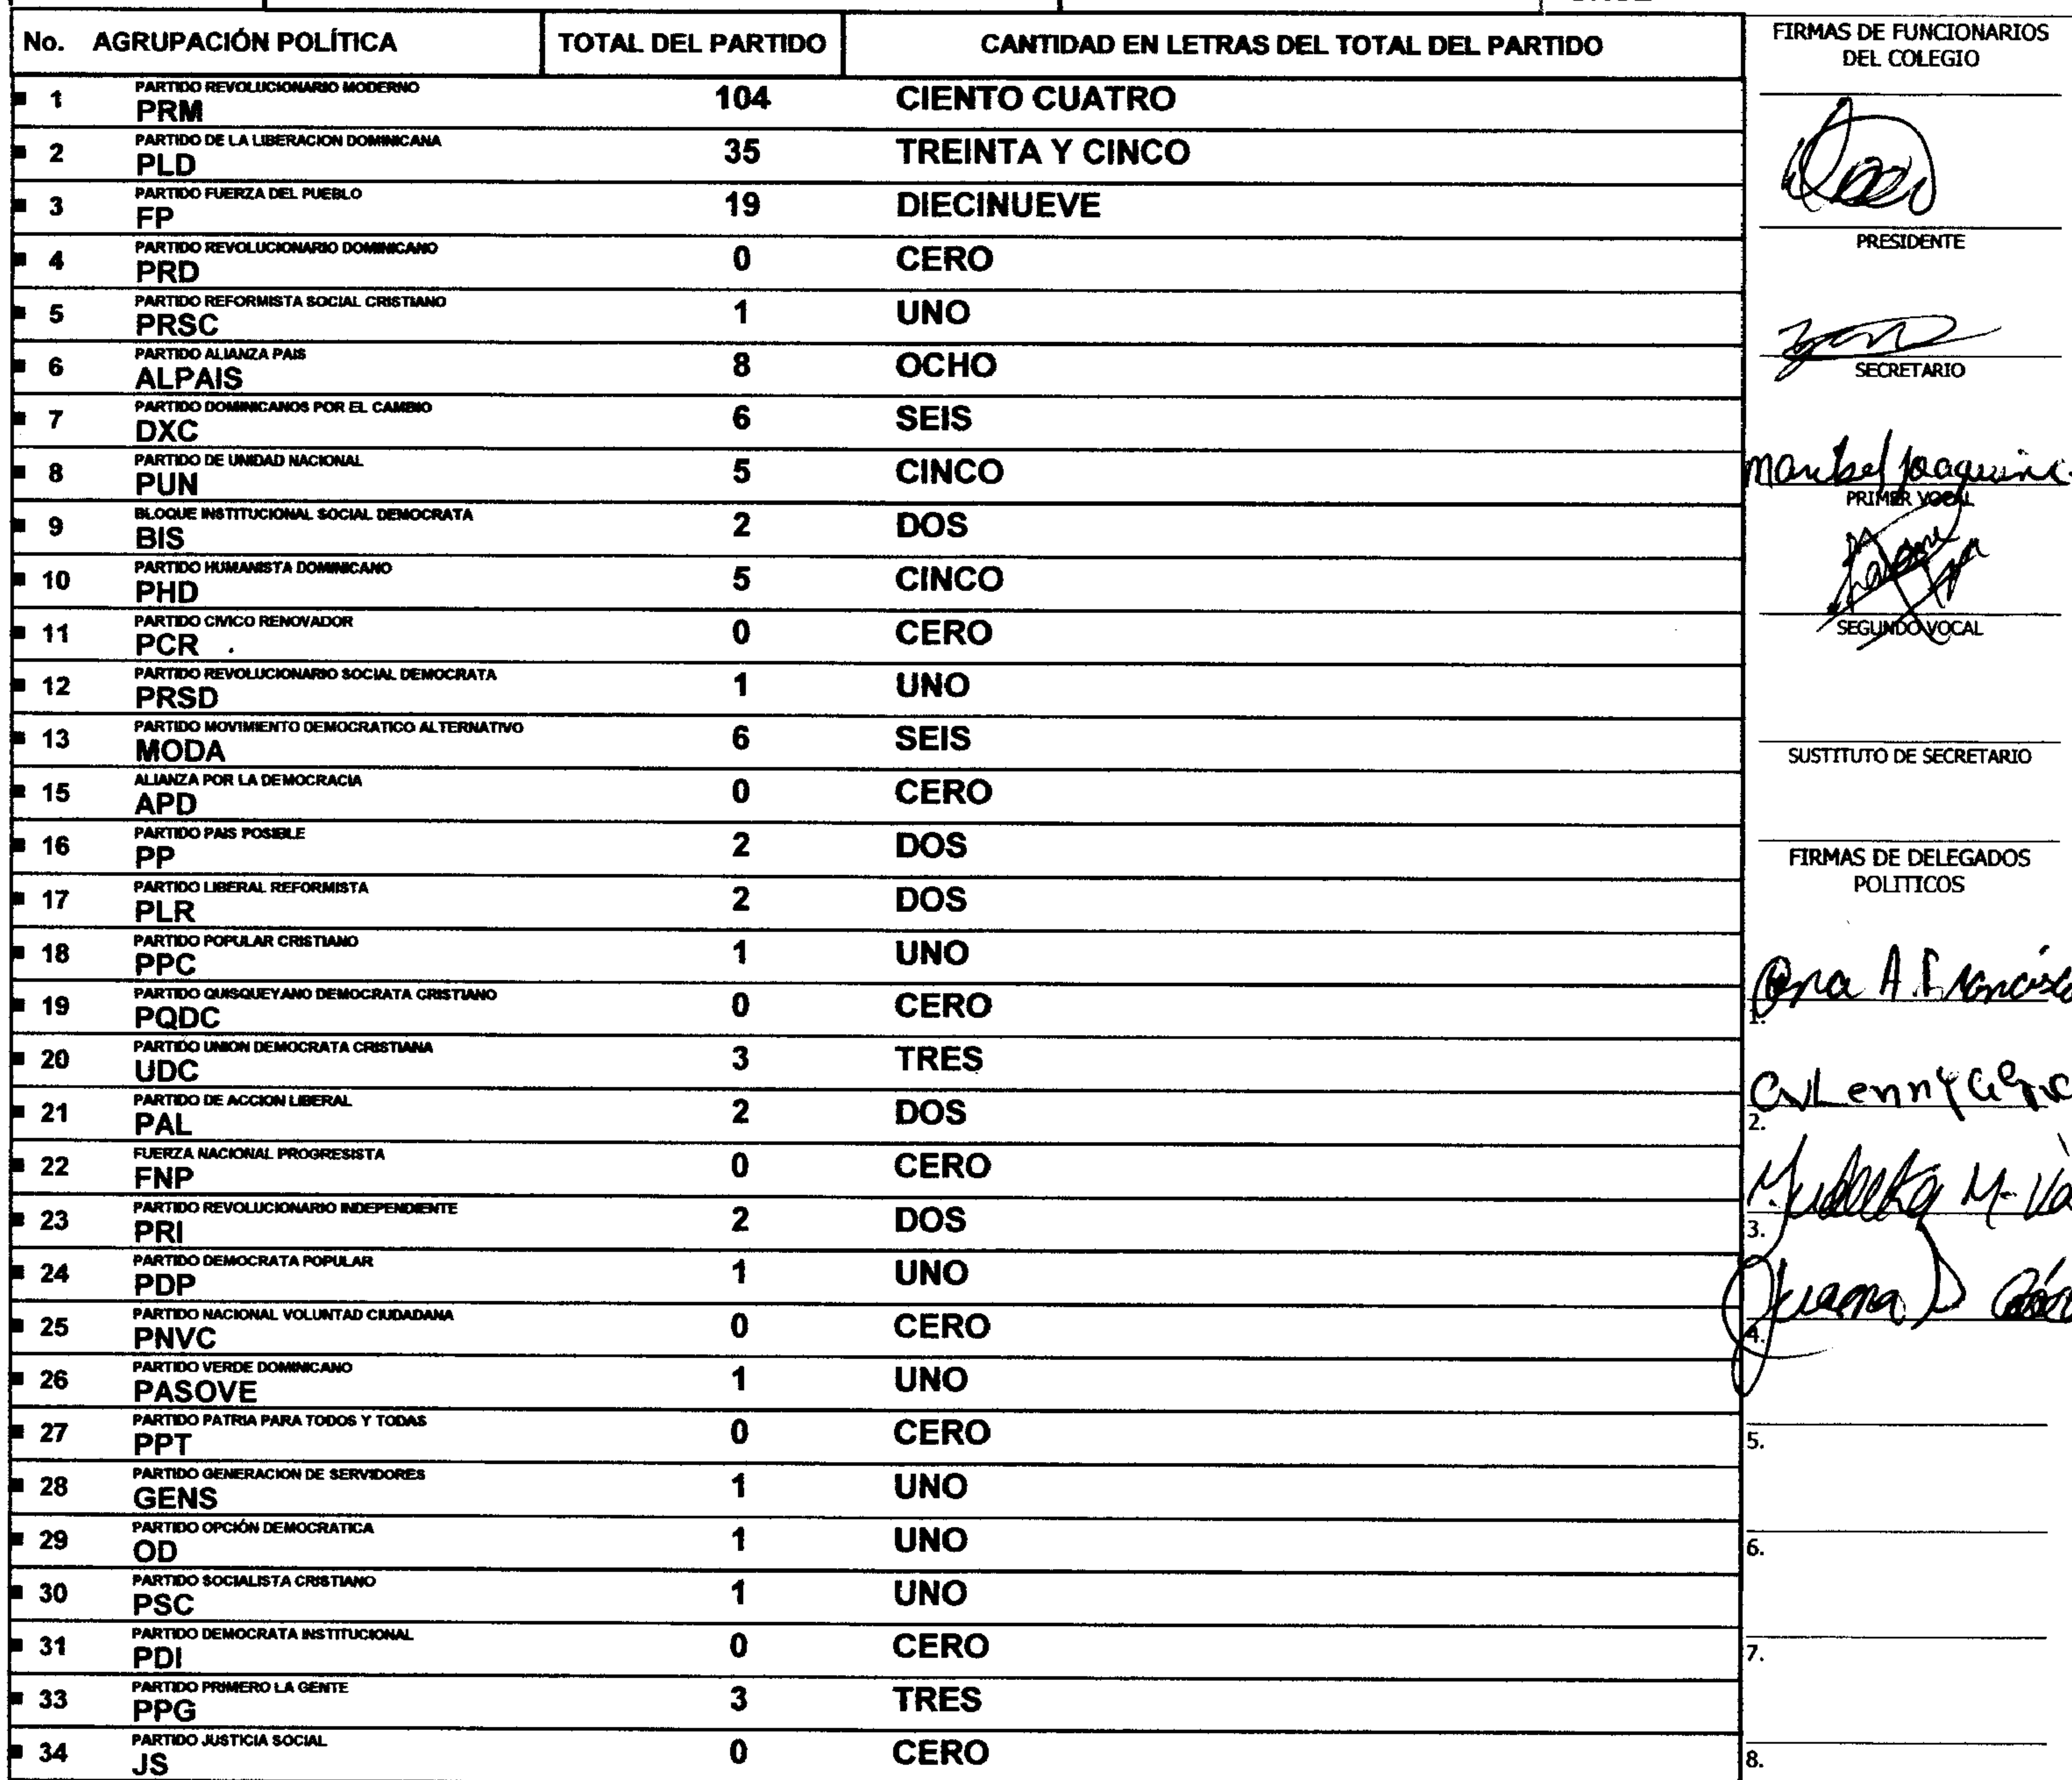 No. AGRUPACIÓN POLÍTICA TOTAL DEL PARTIDO CANTIDAD EN LETRAS DEL TOTAL DEL PARTIDO
PARTIDO REVOLUCIONARIO MODERNO
1 PRM 104 CIENTO CUATRO
PARTIDO DE LA LIBERACION DOMINICANA
2 PLD 35 TREINTA Y CINCO
PARTIDO FUERZA DEL PUEBLO
3 FP 19 DIECINUEVE
PARTIDO REVOLUCIONARIO DOMINICANO
4 PRD 0 CERO
PARTIDO REFORMISTA SOCIAL CRISTIANO
5 PRSC 1 UNO
PARTIDO ALIANZA PAIS
6 ALPAIS 8 OCHO
PARTIDO DOMINICANOS POR EL CAMBIO
7 DXC 6 SEIS
PARTIDO DE UNIDAD NACIONAL
8 PUN 5 CINCO
BLOQUE INSTITUCIONAL SOCIAL DEMOCRATA
9 BIS 2 DOS
PARTIDO HUMANISTA DOMINICANO
10 PHD 5 CINCO
PARTIDO CIVICO RENOVADOR
11 PCR 0 CERO
PARTIDO REVOLUCIONARIO SOCIAL DEMOCRATA
12 PRSD 1 UNO
PARTIDO MOVIMIENTO DEMOCRATICO ALTERNATIVO
13 MODA 6 SEIS
ALIANZA POR LA DEMOCRACIA
15 APD 0 CERO
PARTIDO PAIS POSIBLE
16 PP 2 DOS
PARTIDO LIBERAL REFORMISTA
17 PLR 2 DOS
PARTIDO POPULAR CRISTIANO
18 PPC 1 UNO
PARTIDO QUISQUEYANO DEMOCRATA CRISTIANO
19 PQDC 0 CERO
PARTIDO UNION DEMOCRATA CRISTIANA
20 UDC 3 TRES
PARTIDO DE ACCION LIBERAL
21 PAL 2 DOS
FUERZA NACIONAL PROGRESISTA
22 FNP 0 CERO
PARTIDO REVOLUCIONARIO INDEPENDIENTE
23 PRI 2 DOS
PARTIDO DEMOCRATA POPULAR
24 PDP 1 UNO
PARTIDO NACIONAL VOLUNTAD CIUDADANA
25 PNVC 0 CERO
PARTIDO VERDE DOMINICANO
26 PASOVE 1 UNO
PARTIDO PATRIA PARA TODOS Y TODAS
27 PPT 0 CERO
PARTIDO GENERACION DE SERVIDORES
28 GENS 1 UNO
PARTIDO OPCIÓN DEMOCRATICA
29 OD 1 UNO
PARTIDO SOCIALISTA CRISTIANO
30 PSC 1 UNO
PARTIDO DEMOCRATA INSTITUCIONAL
31 PDI 0 CERO
PARTIDO PRIMERO LA GENTE
33 PPG 3 TRES
PARTIDO JUSTICIA SOCIAL
34 JS 0 CERO
FIRMAS DE FUNCIONARIOS
DEL COLEGIO
PRESIDENTE
SECRETARIO
PRIMER VOCAL
SEGUNDO VOCAL
SUSTITUTO DE SECRETARIO
FIRMAS DE DELEGADOS
POLITICOS
1. Ana A.
2.
3.
4. Juana
5.
6.
7.
8.